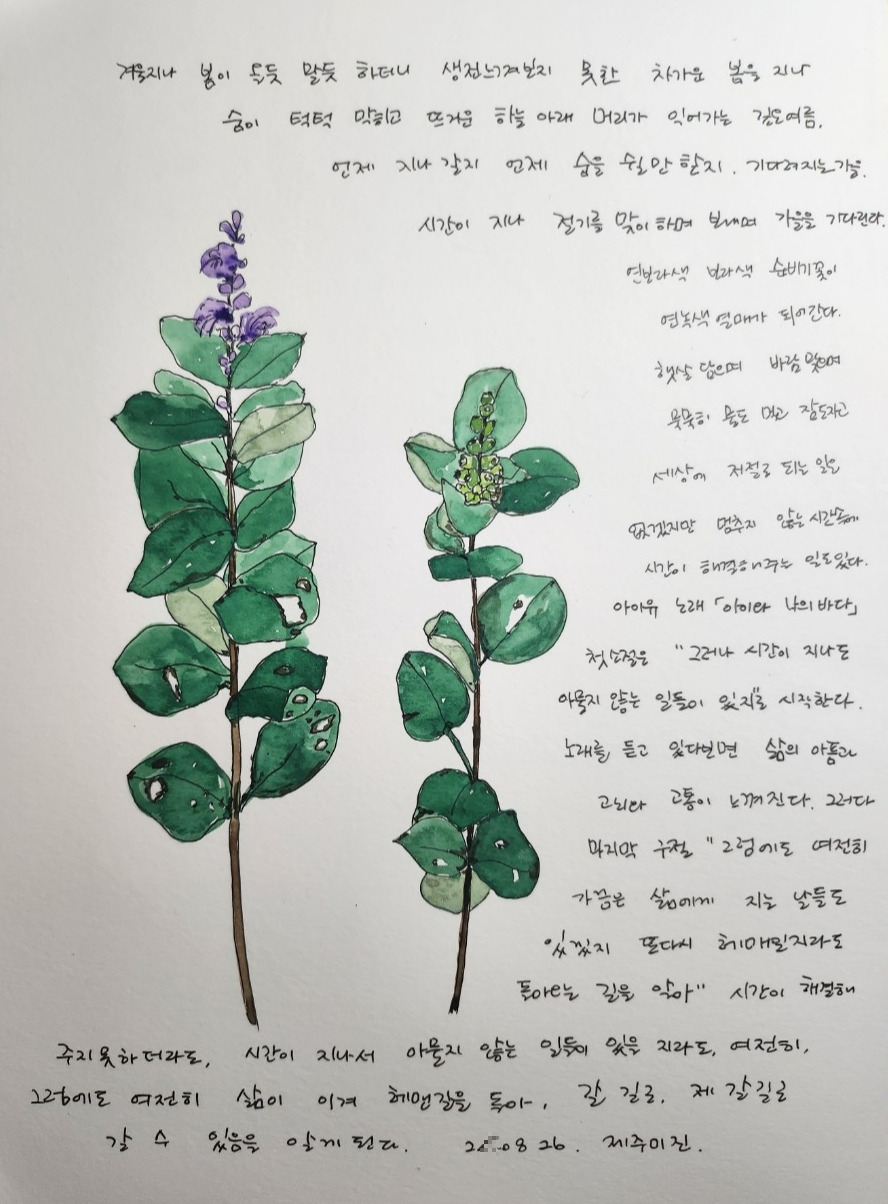 겨울지나 봄이 올듯 말듯 하더니 생전느껴보지 못한 차가운 봄을 지나
숨이 턱턱 막히고 뜨거운 하늘 아래 머리가 익어가는 깊은여름.
언제 지나 갈지 언제 숨을 쉴만 한지. 기다려지는가을.
시간이 지나 절기를 맞이하며 보내며 가을을 기다린다.
연보라색 보라색 순비기꽃이
연녹색 열매가 되어간다.
햇살 담으며 바람 맞으며
묵묵히 물도 먹고 잠도자고
세상에 저절로 되는 일은
없겠지만 멈추지 않는 시간속에
시간이 해결해 주는 일도있다.
아이유 노래 「아이와 나의 바다」
첫소절은 "그러나 시간이 지나도
아물지 않는 일들이 있지"로 시작한다.
노래를 듣고 있다보면 삶의 아픔과
고뇌와 고통이 느껴진다. 그러다
마지막 구절 "그럼에도 여전히
가끔은 삶에게 지는 날들도
있겠지 또다시 헤매일지라도
돌아오는 길을 알아" 시간이 해결해
주지 못하더라도, 시간이 지나서 아물지 않는 일들이 있을 지라도, 여전히,
그럼에도 여전히 삶이 이겨 헤맨길을 돌아, 갈 길로, 제 갈길로
갈 수 있음을 알게 된다. 2 08 26. 제주미진.